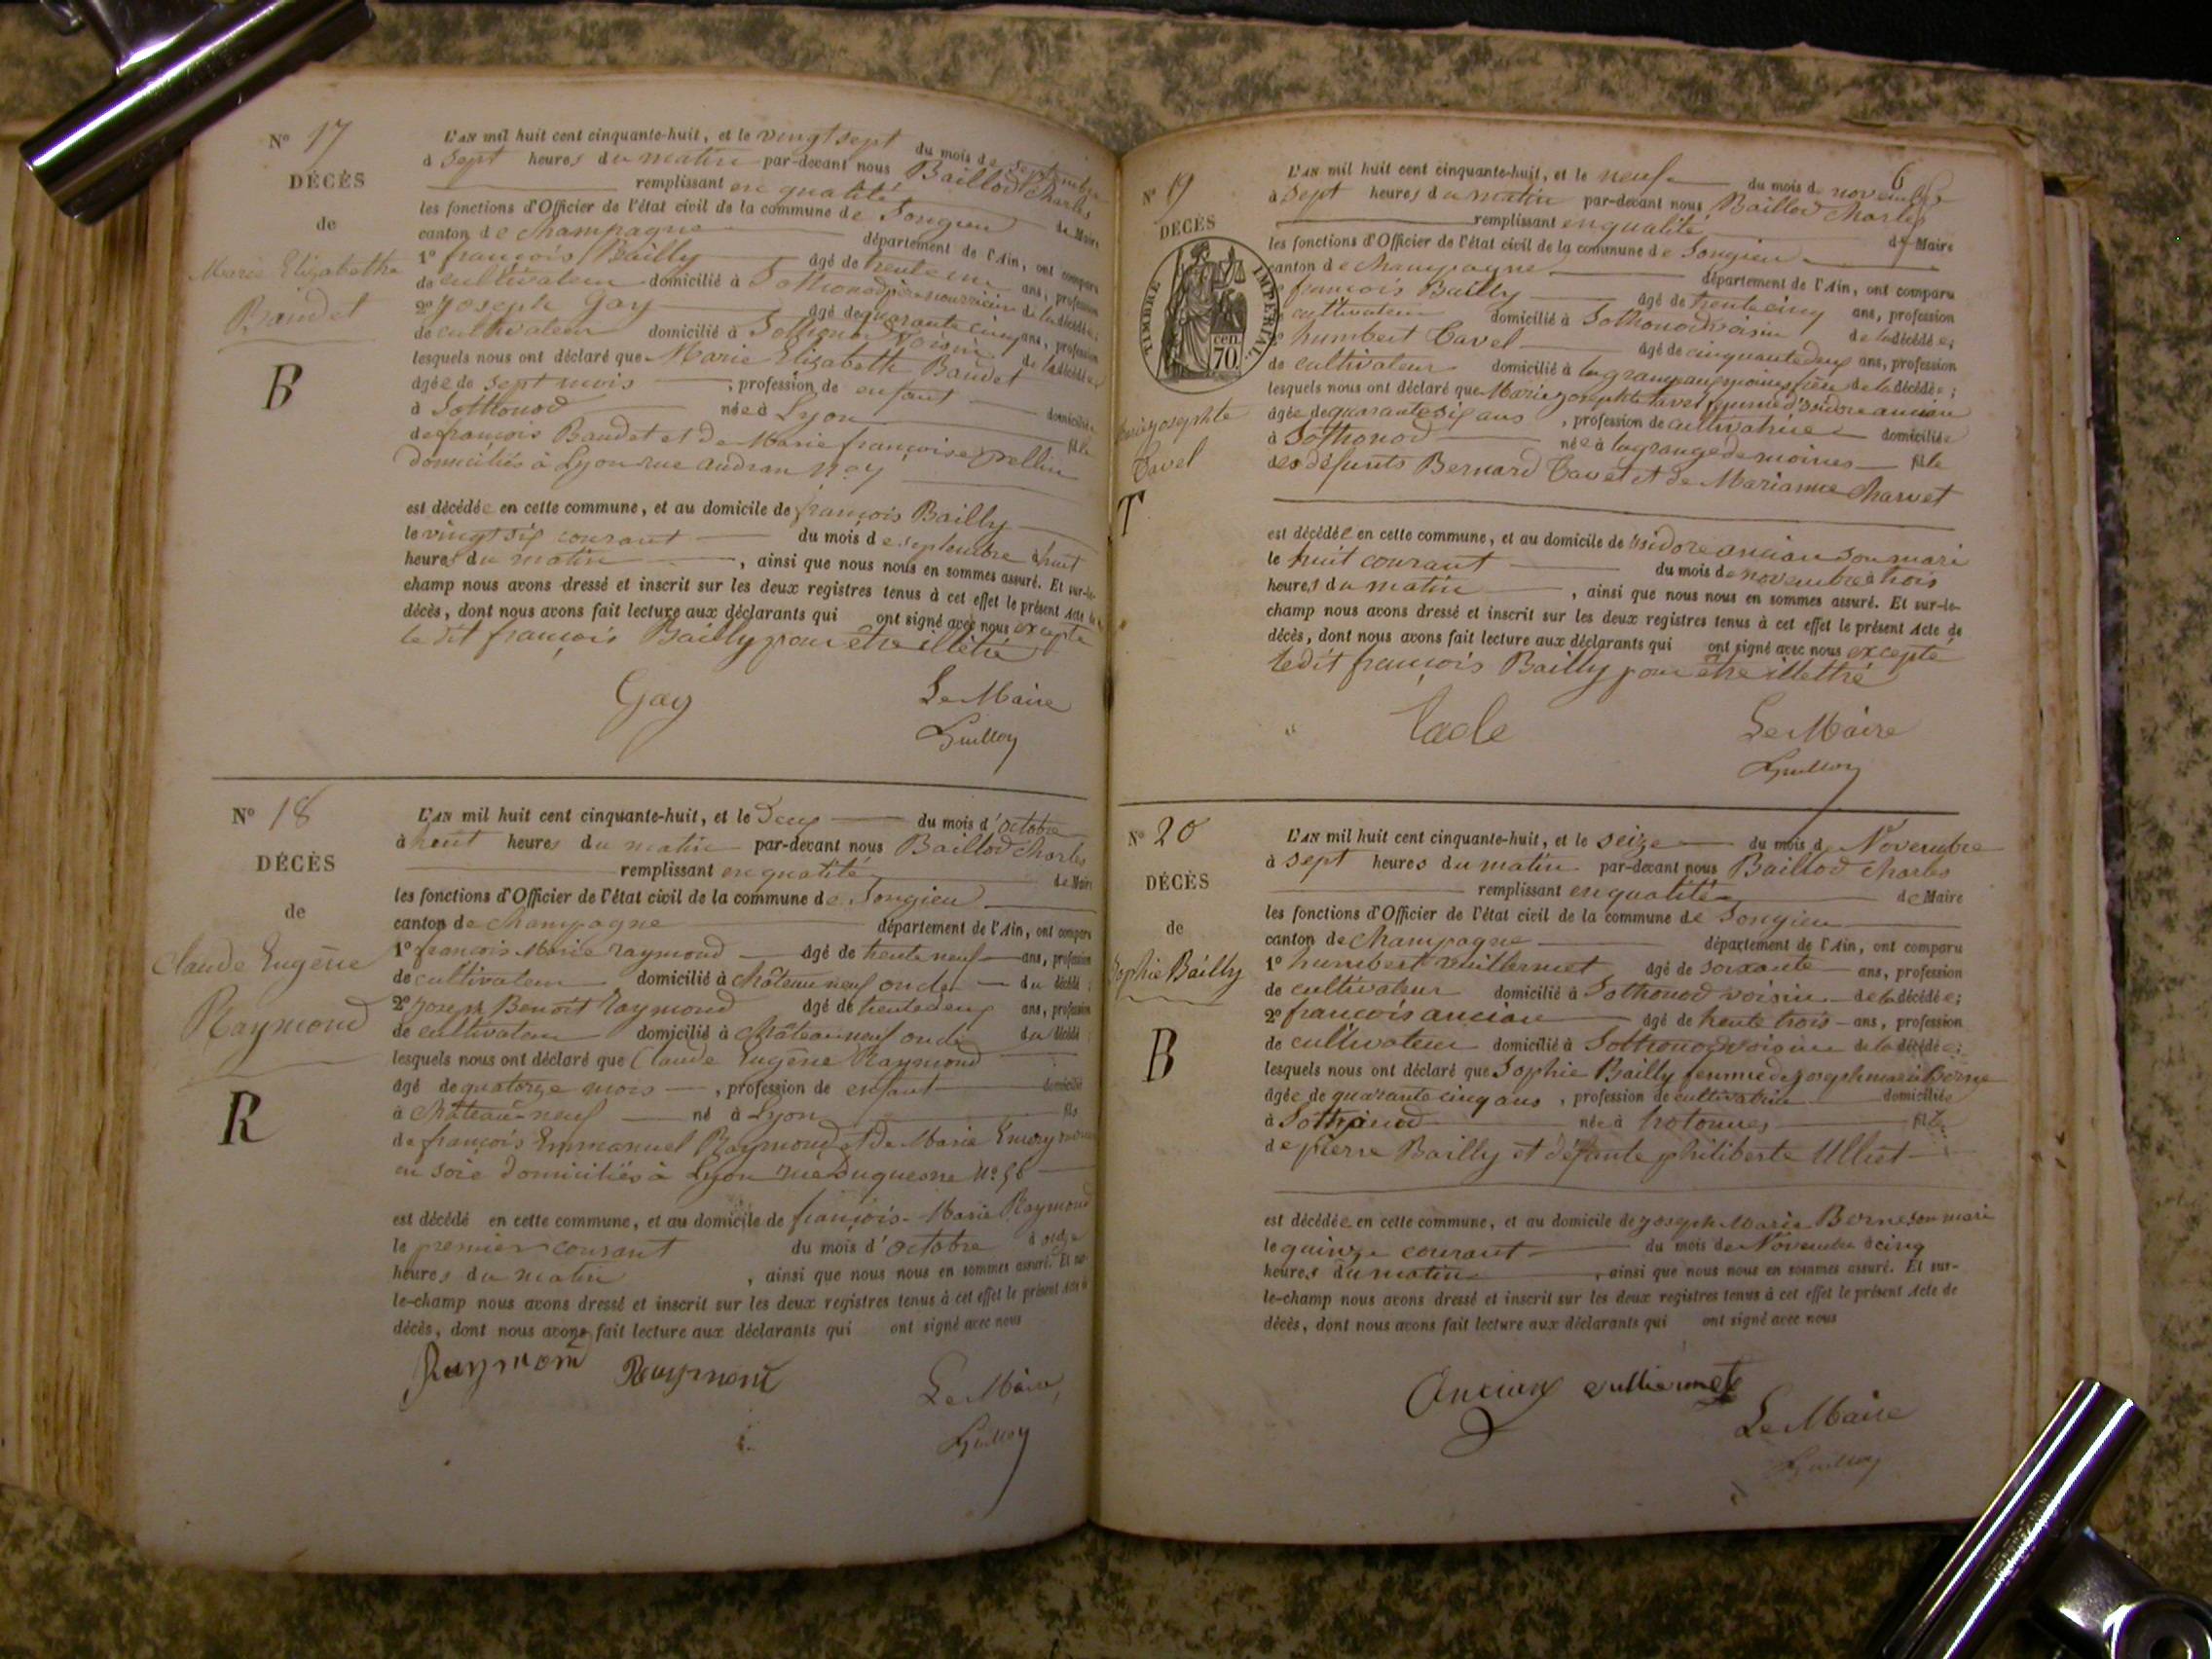 N° 17
DÉCÈS
de
Marie Elizabethe
Baudet
B
L'AN mil huit cent cinquante-huit, et le vingt sept du mois de septembre
à sept heures du matin par-devant nous Baillod Charles
remplissant en qualité de Maire
les fonctions d'Officier de l'état civil de la commune de Songieu
canton de Champagne département de l'Ain, ont comparu
1° françois Bailly âgé de trente ans, profession
de cultivateur domicilié à Sothonod père nourricier de la décédée;
2° Joseph Gay âgé de quarante cinq ans, profession
de cultivateur domicilié à Sothonod voisin de la décédée
lesquels nous ont déclaré que Marie Elizabeth Baudet
âgée de sept mois, profession de enfant domiciliée
à Sothonod née à Lyon fille
de françois Baudet et de Marie françoise pellin
domiciliés à Lyon rue audran n° 7
est décédée en cette commune, et au domicile de françois Bailly
le vingt six courant du mois de septembre à huit
heures du matin, ainsi que nous nous en sommes assuré. Et sur-le-
champ nous avons dressé et inscrit sur les deux registres tenus à cet effet le présent Acte de
décès, dont nous avons fait lecture aux déclarants qui ont signé avec nous excepté
le dit françois Bailly pour être illetré
Gay Le Maire
N° 18
DÉCÈS
de
Claude Eugène
Raymond
R
L'AN mil huit cent cinquante-huit, et le deux du mois d'octobre
à huit heures du matin par-devant nous Baillod Charles
remplissant en qualité de Maire
les fonctions d'Officier de l'état civil de la commune de Songieu
canton de Champagne département de l'Ain, ont comparu
1° françois Marie raymond âgé de trente neuf ans, profession
de cultivateur domicilié à châteauneuf oncle du décédé;
2° joseph Benoit raymond âgé de trente deux ans, profession
de cultivateur domicilié à châteauneuf oncle du décédé
lesquels nous ont déclaré que Claude Eugène Raymond
âgé de quatorze mois, profession de enfant domicilié
à Château-neuf né à Lyon fils
de françois Emmanuel Raymond et de Marie Emery
en soie domiciliés à Lyon rue duquesne
est décédé en cette commune, et au domicile de françois-Marie Raymond
le premier courant du mois d'octobre à onze
heures du matin, ainsi que nous nous en sommes assuré. Et sur-
le-champ nous avons dressé et inscrit sur les deux registres tenus à cet effet le présent Acte de
décès, dont nous avons fait lecture aux déclarants qui ont signé avec nous
Raymond Raymond Le Maire
6
N° 19
DÉCÈS
TIMBRE IMPÉRIAL
70 cen.
Marie josephte
Tavel
T
L'AN mil huit cent cinquante-huit, et le neuf du mois de novembre
à sept heures du matin par-devant nous Baillod Charles
remplissant en qualité de Maire
les fonctions d'Officier de l'état civil de la commune de Songieu
canton de Champagne département de l'Ain, ont comparu
françois Bailly âgé de trente cinq ans, profession
cultivateur domicilié à Sothonod voisin de la décédée;
humbert Tavel âgé de cinquante deux ans, profession
de cultivateur domicilié à frère de la décédée;
lesquels nous ont déclaré que Marie josephte tavel femme d'isidore ancian
âgée de quarante six ans, profession de cultivatrice domiciliée
à Sothonod née à la grange de moines fille
des défunts Bernard Tavel et de Marianne Charvet
est décédée en cette commune, et au domicile de isidore ancian son mari
le huit courant du mois de novembre à trois
heures du matin, ainsi que nous nous en sommes assuré. Et sur-le-
champ nous avons dressé et inscrit sur les deux registres tenus à cet effet le présent Acte de
décès, dont nous avons fait lecture aux déclarants qui ont signé avec nous excepté
ledit françois Bailly pour être illettré
Le Maire
N° 20
DÉCÈS
de
Sophie Bailly
B
L'AN mil huit cent cinquante-huit, et le seize du mois de Novembre
à sept heures du matin par-devant nous Baillod Charles
remplissant en qualité de Maire
les fonctions d'Officier de l'état civil de la commune de Songieu
canton de Champagne département de l'Ain, ont comparu
1° humbert vuillermet âgé de soixante ans, profession
de cultivateur domicilié à Sothonod voisin de la décédée;
2° françois ancian âgé de trente trois ans, profession
de cultivateur domicilié à Sothonod voisin de la décédée;
lesquels nous ont déclaré que Sophie Bailly femme de joseph marie Berne
âgée de quarante cinq ans, profession de cultivatrice domiciliée
à Sothonod née à hotonnes fille
de pierre Bailly et défunte philiberte Ulliet
est décédée en cette commune, et au domicile de joseph Marie Berne son mari
le quinze courant du mois de Novembre à cinq
heures du matin, ainsi que nous nous en sommes assuré. Et sur-
le-champ nous avons dressé et inscrit sur les deux registres tenus à cet effet le présent Acte de
décès, dont nous avons fait lecture aux déclarants qui ont signé avec nous
Ancian vulliermet
Le Maire